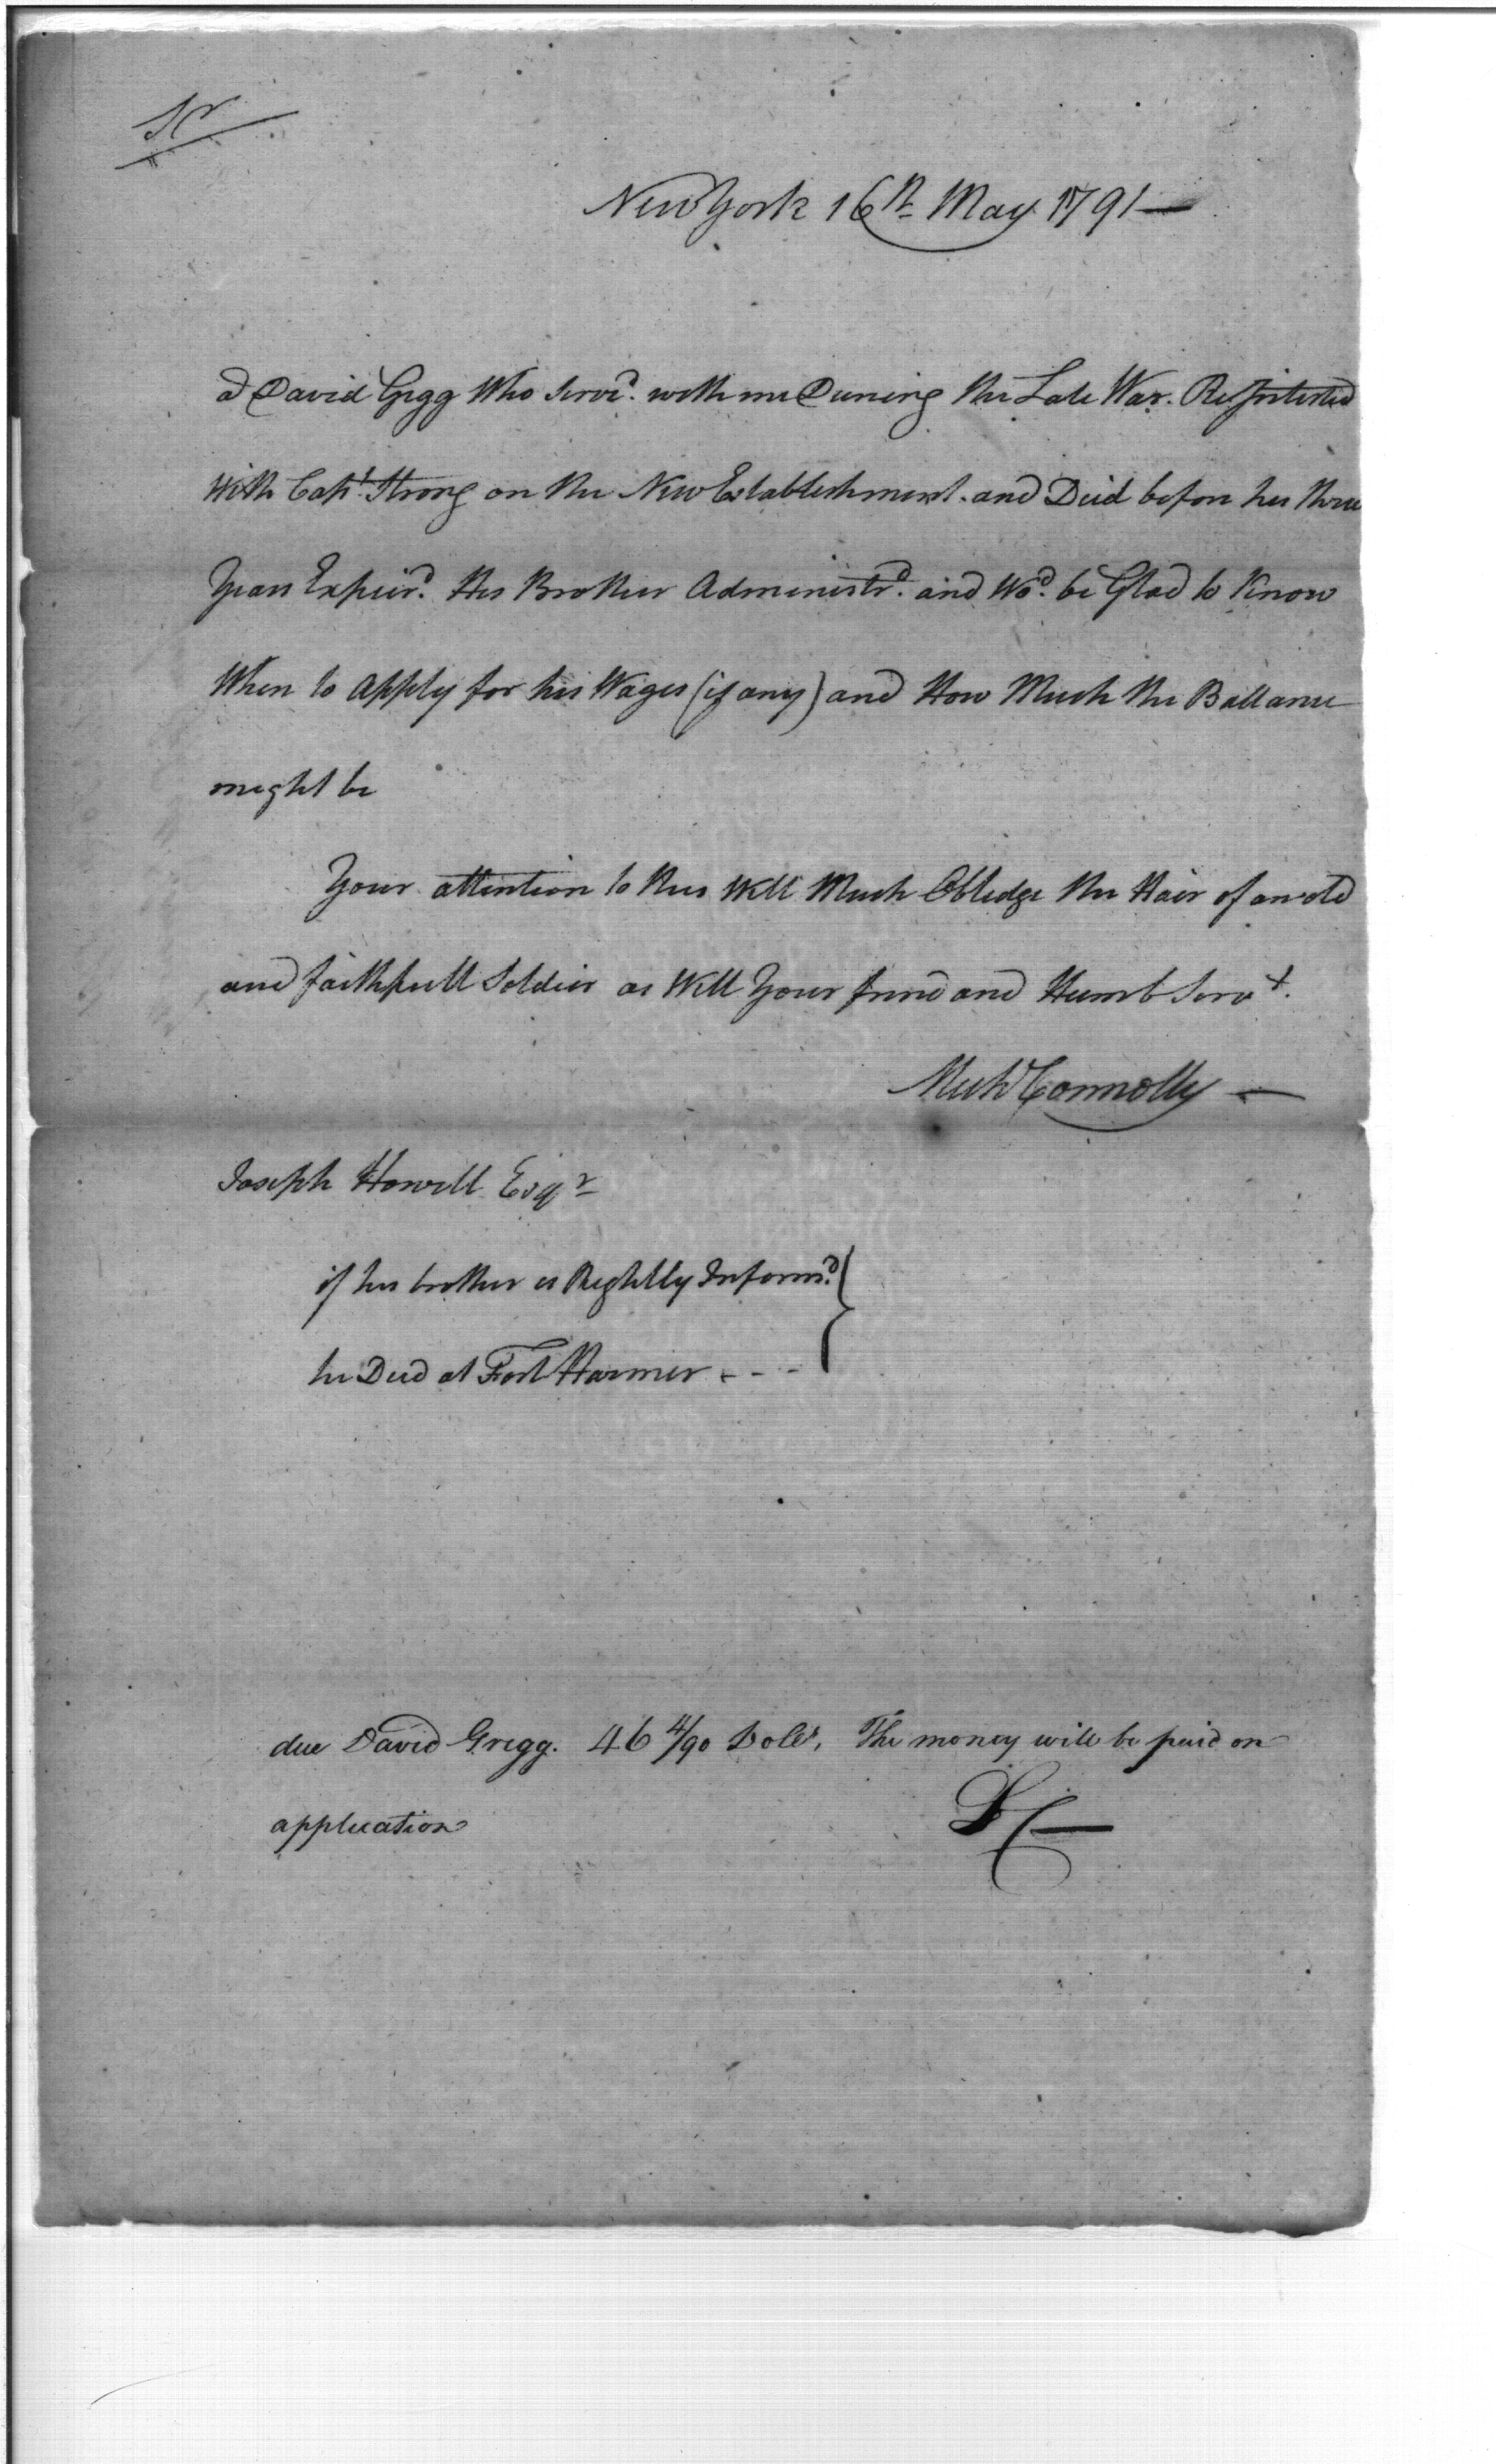 Sr
New York 16th May 1791
a David Gregg Who Servd. with me During the Late War. Reinlisted
With Capt. Strong on the New Establishment. and Died before his three
Years Expierd. His Brother Administrd. and Wod. be Glad to Know
When to Apply for his Wages (if any) and How Much the Ballance
might be
Your attention to this Will Much Obledge the Hair of an old
and faithfull Soldier as Well Your frind and Humb Servt.
Michl Connolly
Joseph Howell Esqr
if his brother is Rightly Informd.
he Died at Fort Harmer - - -
due David Gregg. 46 4/90 Dolls, The money will be paid on
application